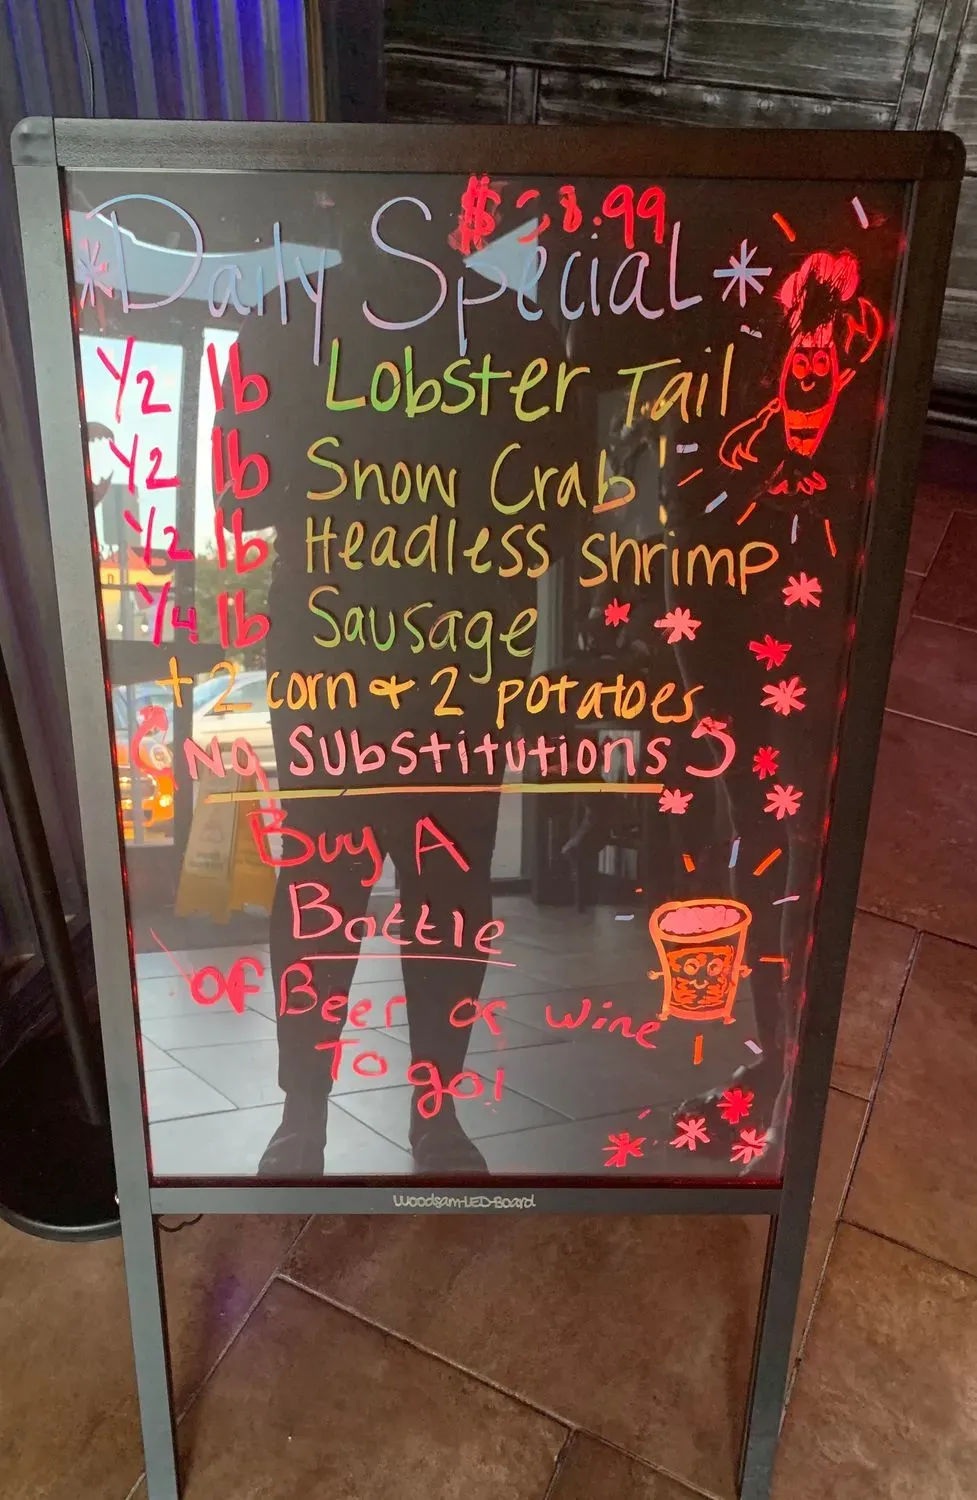 Daily Special
1/2 lb Lobster Tail
1/2 lb Snow Crab
1/2 lb Headless shrimp
1/4 lb Sausage
+ 2 corn & 2 potatoes
No Substitutions
Buy A
Bottle
of Beer or wine
To go!
Woodsam-LED-Board